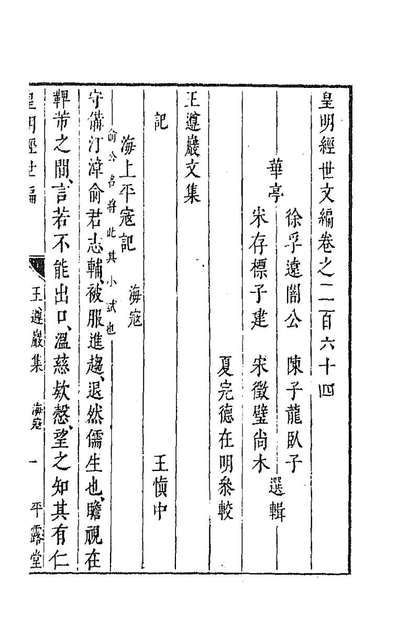 皇明經世文編卷之二百六十四
華亭
徐孚遠闇公 陳子龍臥子
宋存標子建 宋徵璧尚木
選輯
夏完德在明叅較
王遵巖文集
記
王慎中
海上平寇記 海寇
俞公名將此其小試也
守備汀漳俞君志輔被服進趨退然儒生也瞻視在
鞞芾之間言若不能出口溫慈欵慤望之知其有仁
皇明經世編
王遵巖集 海寇 一 平露堂